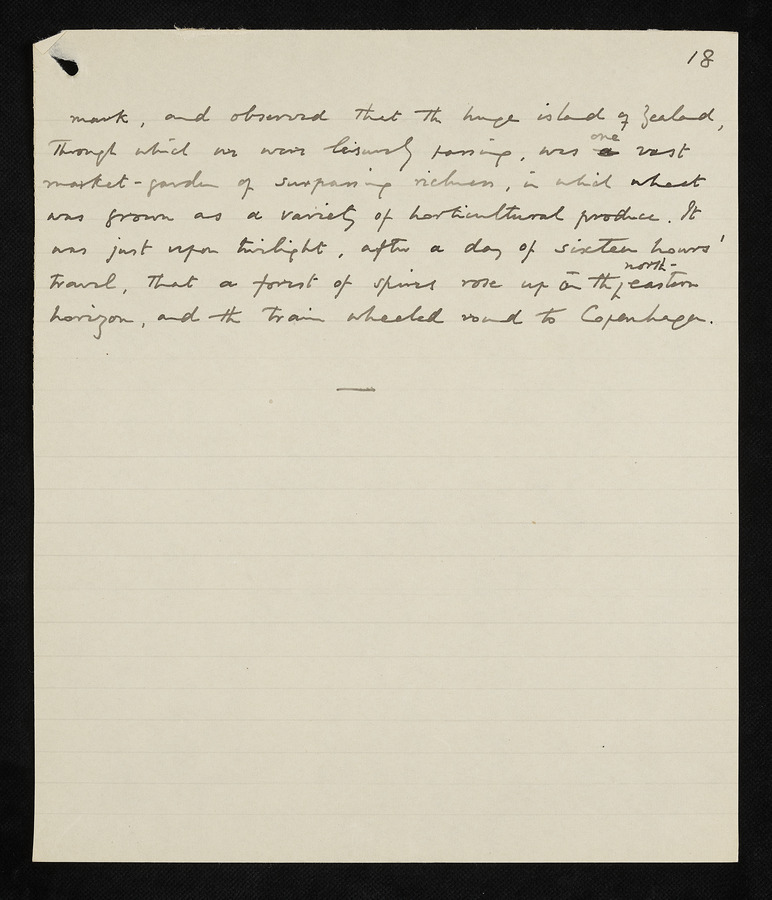 18
mark, and observed that the huge island of Zealand,
through which we were leisurely passing, was a one vast
market-garden of surpassing richness, in which wheat
was grown as a variety of horticultural produce. It
was just upon twilight, after a day of sixteen hours'
travel, that a forest of spires rose up on the north-eastern
horizon, and the train wheeled round to Copenhagen.